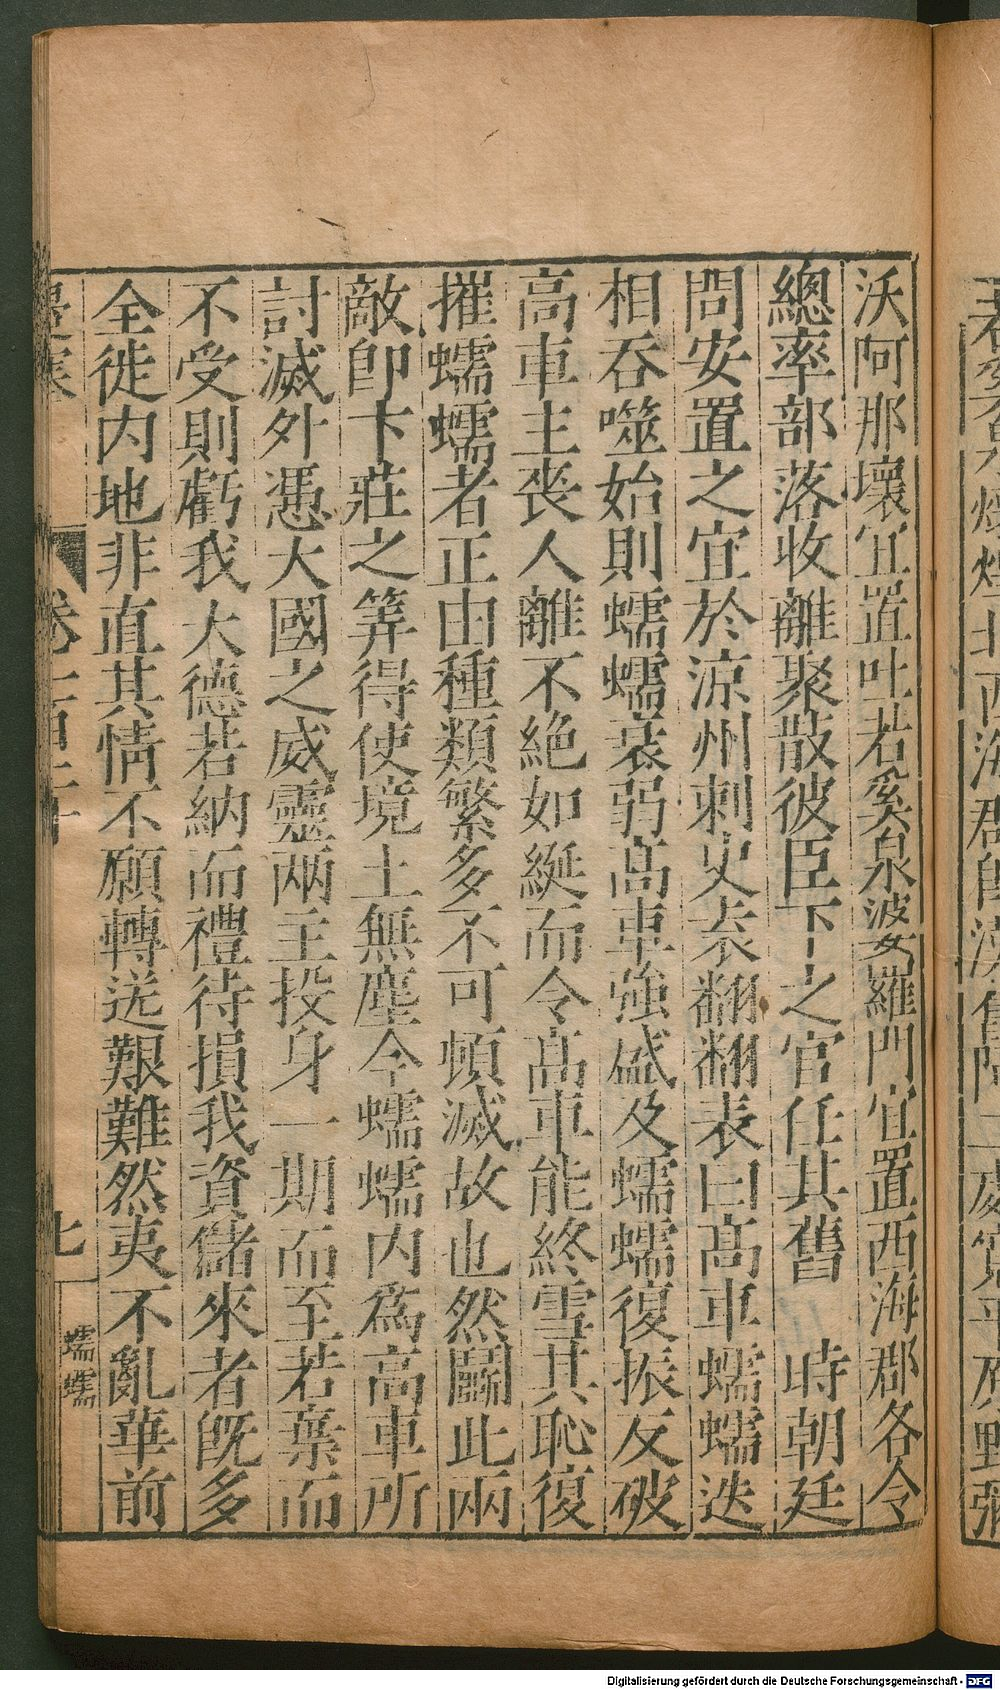 沃阿那壞宜置吐若奚泉婆羅門宜置西海郡各令
總率部落收離聚散彼臣下之官任其舊　時朝廷
問安置之宜於涼州刺史袁翻翻表曰高車蠕蠕迭
相吞噬始則蠕蠕衰弱高車強盛及蠕蠕復振反破
高車主喪人離不絕如綖而令高車能終雪其恥復
摧蠕蠕者正由種類繁多不可頓滅故也然鬭此兩
敵即卞莊之筭得使境土無塵今蠕蠕內為高車所
討滅外憑大國之威靈兩主投身一期而至若棄而
不受則虧我大德若納而禮待損我資儲來者既多
全徙內地非直其情不願轉送艱難然夷不亂華前
卷二百二十
七
蠕蠕
Digitalisierung gefördert durch die Deutsche Forschungsgemeinschaft - DFG